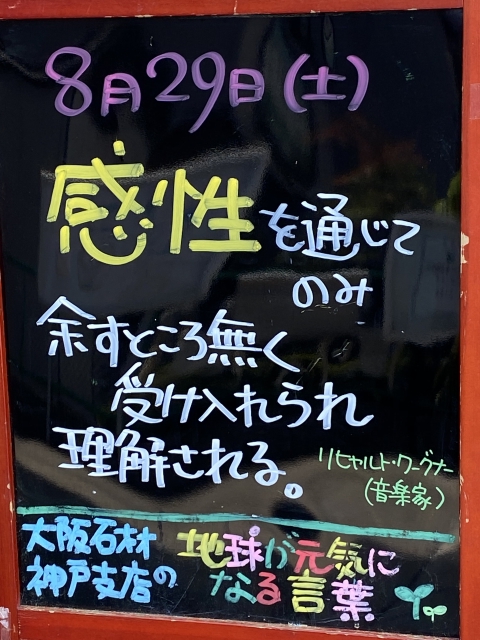 8月29日(土)
感性を通じて
のみ
余すところ無く
受け入れられ
理解される。
リヒャルト・ワーグナー
(音楽家)
大阪石材
神戸支店の
地球が元気に
なる言葉